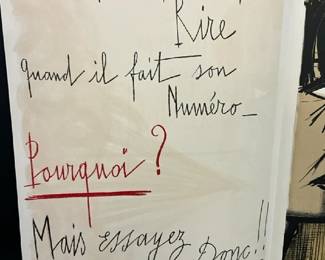 Rire
quand il fait son
Numéro_
Pourquoi ?
Mais essayez Donc !!